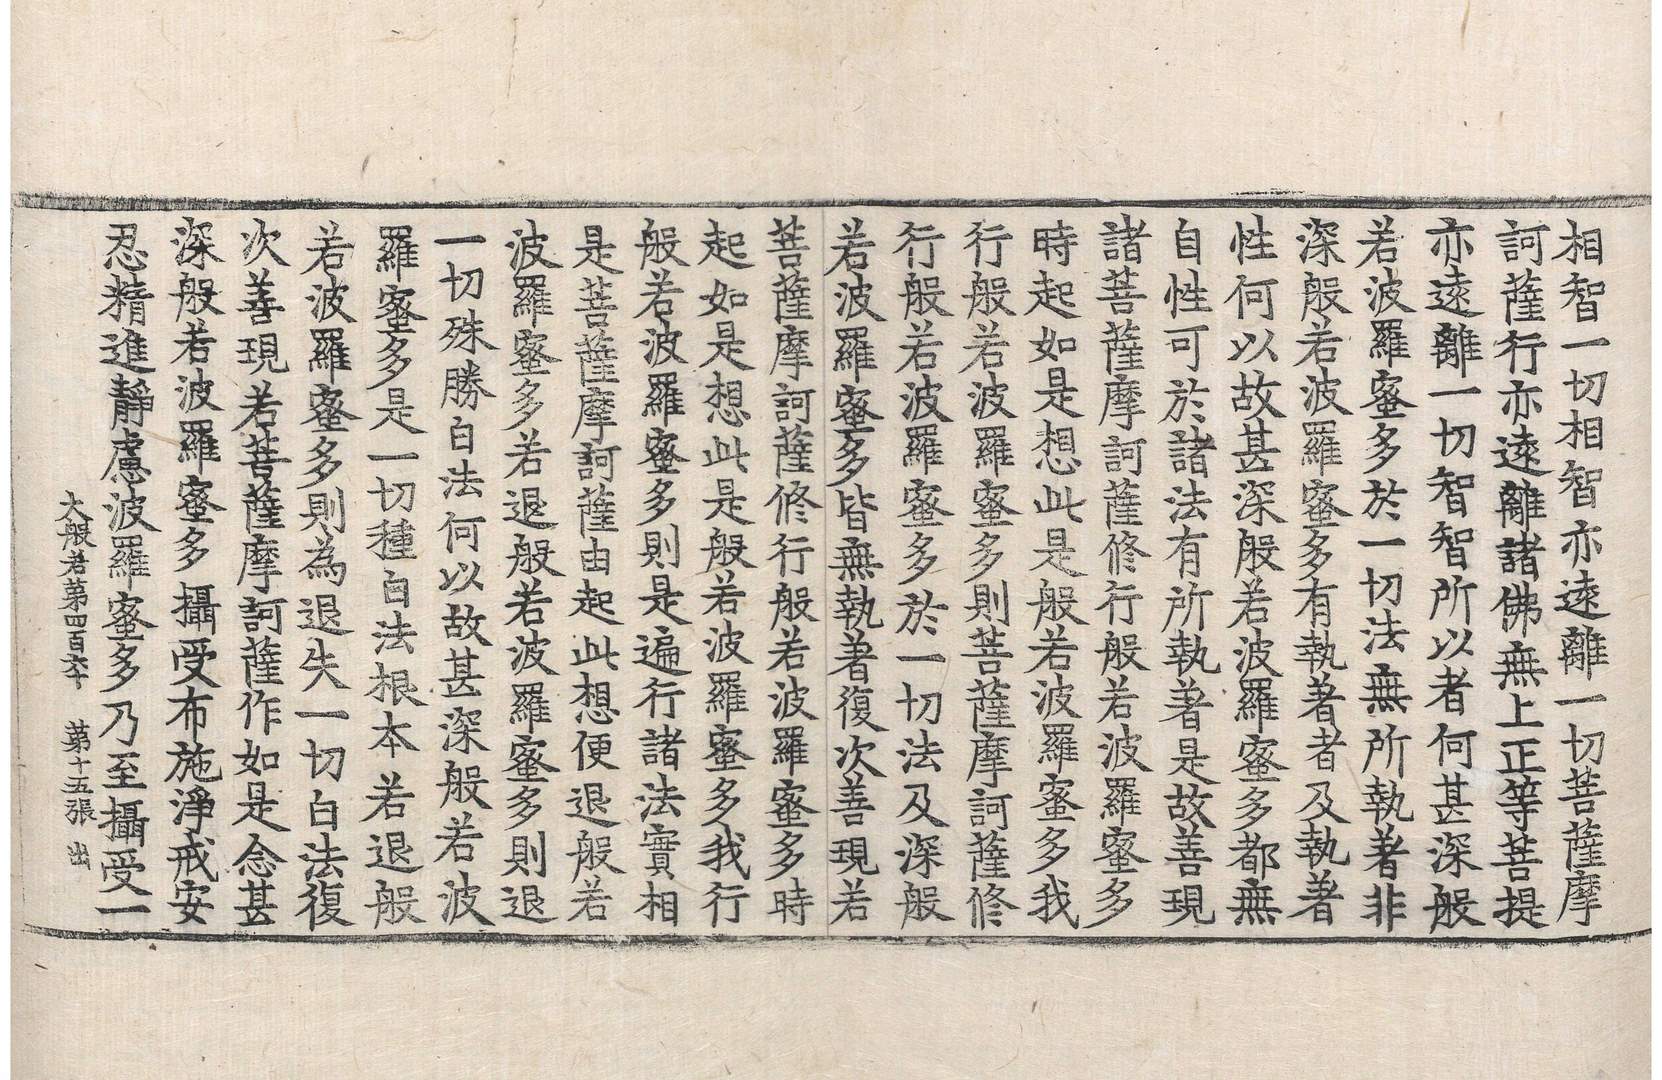 相智一切相智亦遠離一切菩薩摩
訶薩行亦遠離諸佛無上正等菩提
亦遠離一切智智所以者何甚深般
若波羅蜜多於一切法無所執著非
深般若波羅蜜多有執著者及執著
性何以故甚深般若波羅蜜多都無
自性可於諸法有所執著是故善現
諸菩薩摩訶薩修行般若波羅蜜多
時起如是想此是般若波羅蜜多我
行般若波羅蜜多則菩薩摩訶薩修
行般若波羅蜜多於一切法及深般
若波羅蜜多皆無執著復次善現若
菩薩摩訶薩修行般若波羅蜜多時
起如是想此是般若波羅蜜多我行
般若波羅蜜多則是遍行諸法實相
是菩薩摩訶薩由起此想便退般若
波羅蜜多若退般若波羅蜜多則退
一切殊勝白法何以故甚深般若波
羅蜜多是一切種白法根本若退般
若波羅蜜多則為退失一切白法復
次善現若菩薩摩訶薩作如是念甚
深般若波羅蜜多攝受布施淨戒安
忍精進靜慮波羅蜜多乃至攝受一
大般若第四百六十 第十五張 出